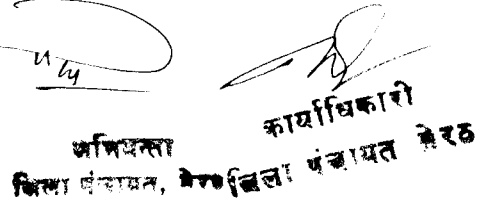 अभियन्ता
जिला पंचायत, मेरठ
कार्याधिकारी
जिला पंचायत मेरठ